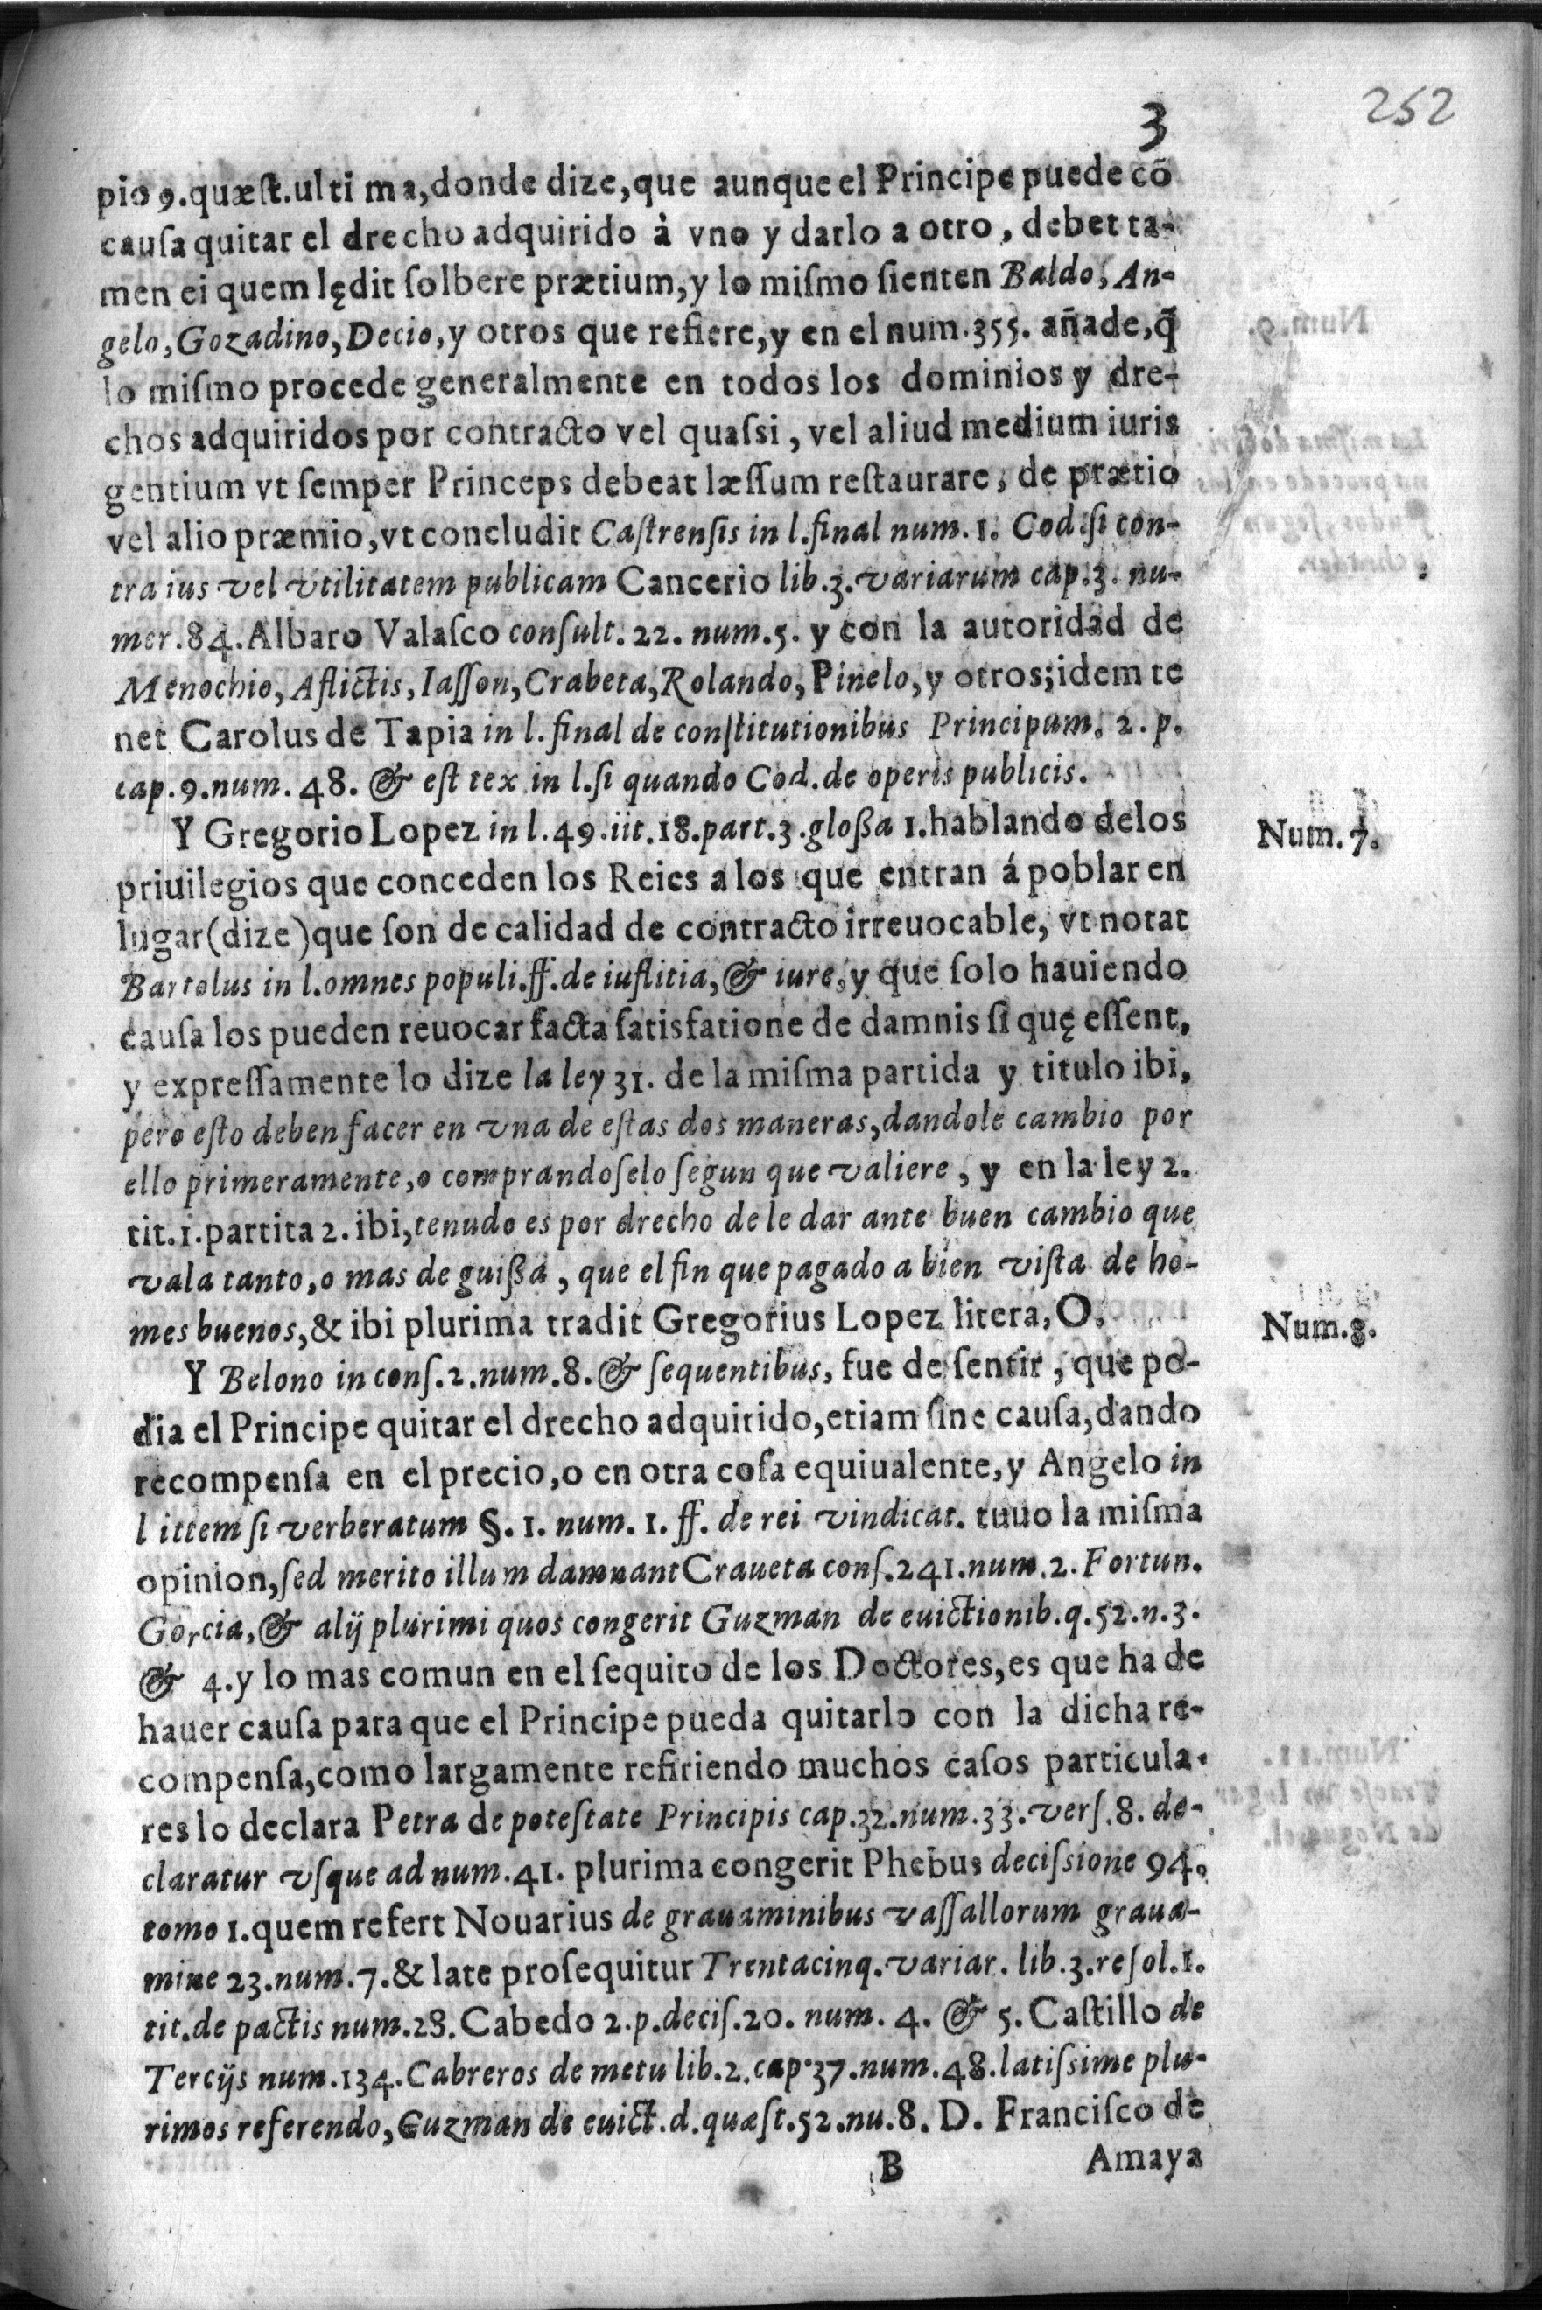 252
3
pio 9. quæst. ulti ma, donde dize, que aunque el Principe puede cõ
causa quitar el drecho adquirido à vno y darlo a otro, debet ta-
men ei quem lędit solbere prætium, y lo mismo sienten Baldo, An-
gelo, Gozadino, Decio, y otros que refiere, y en el num. 355. añade, q̃
lo mismo procede generalmente en todos los dominios y dre-
chos adquiridos por contracto vel quassi, vel aliud medium iuris
gentium vt semper Princeps debeat læssum restaurare, de prætio
vel alio præmio, vt concludit Castrensis in l. final num. 1. Cod. si con-
tra ius vel vtilitatem publicam Cancerio lib. 3. variarum cap. 3. nu-
mer. 84. Albaro Valasco consult. 22. num. 5. y con la autoridad de
Menochio, Aflictis, Iasson, Crabeta, Rolando, Pinelo, y otros; idem te
net Carolus de Tapia in l. final de constitutionibus Principum. 2. p.
cap. 9. num. 48. & est tex in l. si quando Cod. de operis publicis.
Y Gregorio Lopez in l. 49. tit. 18. part. 3. glossa 1. hablando delos
Num. 7.
priuilegios que conceden los Reies a los que entran á poblar en
lugar (dize) que son de calidad de contracto irreuocable, vt notat
Bartolus in l. omnes populi. ff. de iustitia, & iure, y que solo hauiendo
causa los pueden reuocar facta satisfatione de damnis si quę essent,
y expressamente lo dize la ley 31. de la misma partida y titulo ibi,
pero esto deben facer en vna de estas dos maneras, dandole cambio por
ello primeramente, o comprandoselo segun que valiere, y en la ley 2.
tit. 1. partita 2. ibi, tenudo es por drecho de le dar ante buen cambio que
vala tanto, o mas de guissa, que el fin que pagado a bien vista de ho-
mes buenos, & ibi plurima tradit Gregorius Lopez litera, O.
Num. 8.
Y Belono in cons. 2. num. 8. & sequentibus, fue de sentir, que po-
dia el Principe quitar el drecho adquirido, etiam sine causa, dando
recompensa en el precio, o en otra cosa equiualente, y Angelo in
l ittem si verberatum §. 1. num. 1. ff. de rei vindicat. tuuo la misma
opinion, sed merito illum damnant Craueta cons. 241. num. 2. Fortun.
Gorcia, & alij plurimi quos congerit Guzman de euictionib. q. 52. n. 3.
& 4. y lo mas comun en el sequito de los Doctores, es que ha de
hauer causa para que el Principe pueda quitarlo con la dicha re-
compensa, como largamente refiriendo muchos casos particula-
res lo declara Petra de potestate Principis cap. 32. num. 33. vers. 8. de-
claratur vsque ad num. 41. plurima congerit Phebus decissione 94.
tomo 1. quem refert Nouarius de grauaminibus vassallorum graua-
mine 23. num. 7. & late prosequitur Trentacinq. variar. lib. 3. resol. 1.
tit. de pactis num. 28. Cabedo 2. p. decis. 20. num. 4. & 5. Castillo de
Tercijs num. 134. Cabreros de metu lib. 2. cap. 37. num. 48. latissime plu-
rimos referendo, Guzman de euict. d. quæst. 52. nu. 8. D. Francisco de
B
Amaya